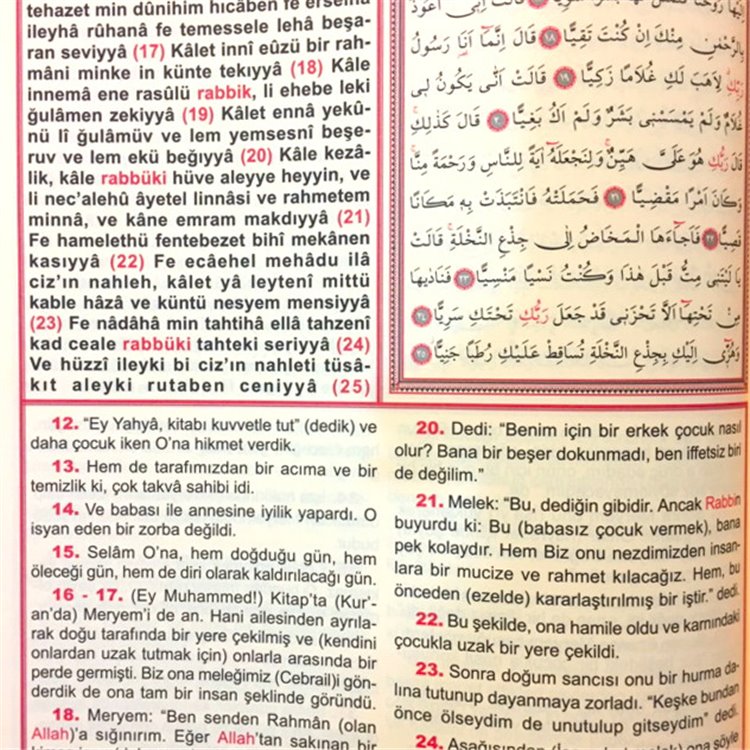 tehazet min dûnihim hıcâben fe erselnâ
ileyhâ rûhanâ fe temessele lehâ beşe-
ran seviyyâ (17) Kâlet innî eûzü bir rah-
mâni minke in künte tekıyyâ (18) Kâle
innemâ ene rasûlü rabbik, li ehebe leki
ğulâmen zekiyyâ (19) Kâlet ennâ yekû-
nü lî ğulâmüv ve lem yemsesnî beşe-
ruv ve lem ekü beğıyyâ (20) Kâle kezâ-
lik, kâle rabbüki hüve aleyye heyyin, ve
li nec'alehû âyetel linnâsi ve rahmetem
minnâ, ve kâne emram makdıyyâ (21)
Fe hamelethü fentebezet bihî mekânen
kasıyyâ (22) Fe ecâehel mehâdu ilâ
ciz'ın nahleh, kâlet yâ leytenî mittü
kable hâzâ ve küntü nesyem mensiyyâ
(23) Fe nâdâhâ min tahtihâ ellâ tahzenî
kad ceale rabbüki tahteki seriyyâ (24)
Ve hüzzî ileyki bi ciz'ın nahleti tüsâ-
kıt aleyki rutaben ceniyyâ (25)
بِالرَّحْمٰنِ مِنْكَ اِنْ كُنْتَ تَقِيًّا ﴿١٨﴾ قَالَ اِنَّمَٓا اَنَا۬ رَسُولُ
رَبِّكِ لِاَهَبَ لَكِ غُلَامًا زَكِيًّا ﴿١٩﴾ قَالَتْ اَنّٰى يَكُونُ لٖى
غُلَامٌ وَلَمْ يَمْسَسْنٖى بَشَرٌ وَلَمْ اَكُ بَغِيًّا ﴿٢٠﴾ قَالَ كَذٰلِكِ
قَالَ رَبُّكِ هُوَ عَلَىَّ هَيِّنٌ وَلِنَجْعَلَهُٓ اٰيَةً لِلنَّاسِ وَرَحْمَةً مِنَّا
وَكَانَ اَمْرًا مَقْضِيًّا ﴿٢١﴾ فَحَمَلَتْهُ فَانْتَبَذَتْ بِهٖ مَكَانًا
قَصِيًّا ﴿٢٢﴾ فَاَجَٓاءَهَا الْمَخَاضُ اِلٰى جِذْعِ النَّخْلَةِ قَالَتْ
يَا لَيْتَنٖى مِتُّ قَبْلَ هٰذَا وَكُنْتُ نَسْيًا مَنْسِيًّا ﴿٢٣﴾ فَنَادٰيهَا
مِنْ تَحْتِهَٓا اَلَّا تَحْزَنٖى قَدْ جَعَلَ رَبُّكِ تَحْتَكِ سَرِيًّا ﴿٢٤﴾
وَهُزّٖٓى اِلَيْكِ بِجِذْعِ النَّخْلَةِ تُسَاقِطْ عَلَيْكِ رُطَبًا جَنِيًّا ﴿٢٥﴾
12. “Ey Yahyâ, kitabı kuvvetle tut” (dedik) ve
daha çocuk iken O'na hikmet verdik.
13. Hem de tarafımızdan bir acıma ve bir
temizlik ki, çok takvâ sahibi idi.
14. Ve babası ile annesine iyilik yapardı. O
isyan eden bir zorba değildi.
15. Selâm O'na, hem doğduğu gün, hem
öleceği gün, hem de diri olarak kaldırılacağı gün.
16 - 17. (Ey Muhammed!) Kitap'ta (Kur'-
an'da) Meryem'i de an. Hani ailesinden ayrıla-
rak doğu tarafında bir yere çekilmiş ve (kendini
onlardan uzak tutmak için) onlarla arasında bir
perde germişti. Biz ona meleğimiz (Cebrail)i gön-
derdik de ona tam bir insan şeklinde göründü.
18. Meryem: “Ben senden Rahmân (olan
Allah)'a sığınırım. Eğer Allah'tan sakınan bir
20. Dedi: “Benim için bir erkek çocuk nasıl
olur? Bana bir beşer dokunmadı, ben iffetsiz biri
de değilim.”
21. Melek: “Bu, dediğin gibidir. Ancak Rabbin
buyurdu ki: Bu (babasız çocuk vermek), bana
pek kolaydır. Hem Biz onu nezdimizden insan-
lara bir mucize ve rahmet kılacağız. Hem, bu
önceden (ezelde) kararlaştırılmış bir iştir.” dedi.
22. Bu şekilde, ona hamile oldu ve karnındaki
çocukla uzak bir yere çekildi.
23. Sonra doğum sancısı onu bir hurma da-
lına tutunup dayanmaya zorladı. “Keşke bundan
önce ölseydim de unutulup gitseydim” dedi.
24. Aşağısından